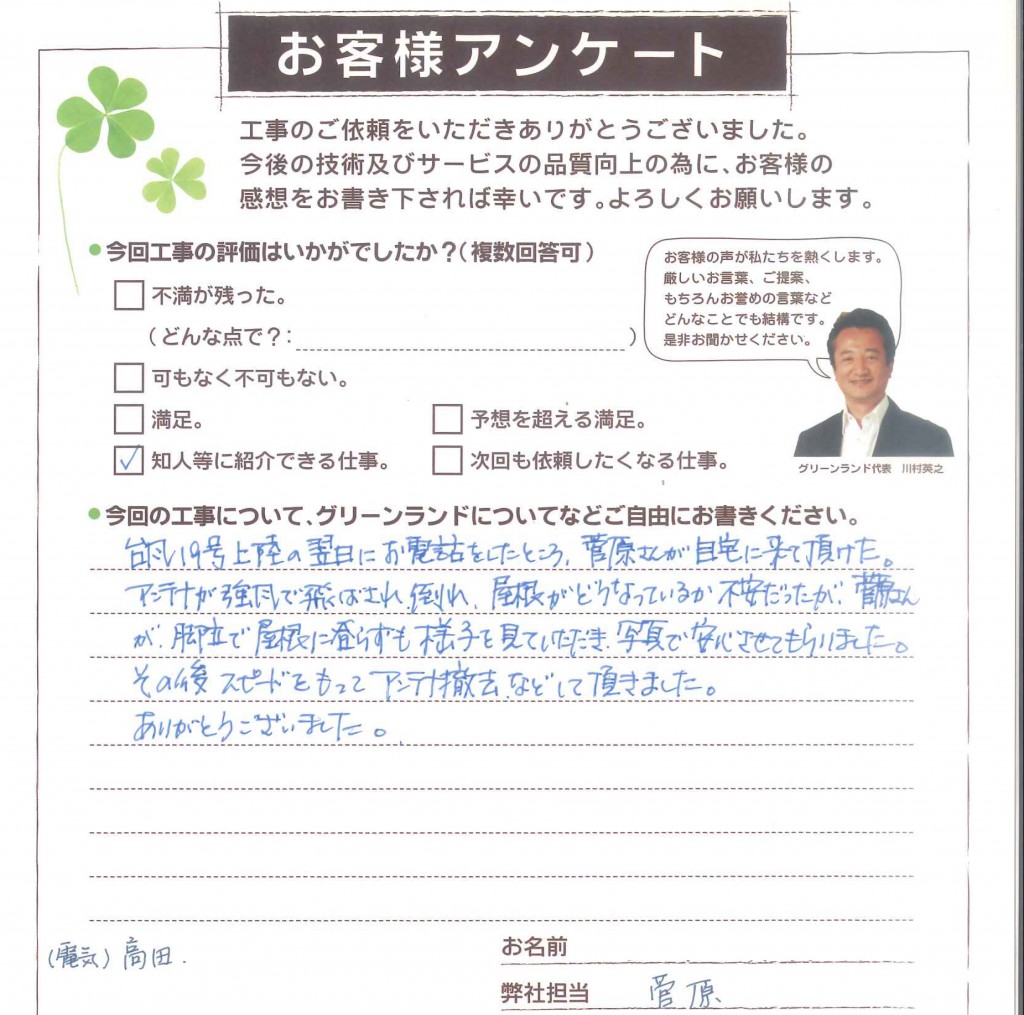 お客様アンケート
工事のご依頼をいただきありがとうございました。
今後の技術及びサービスの品質向上の為に、お客様の
感想をお書き下されば幸いです。よろしくお願いします。
●今回工事の評価はいかがでしたか？（複数回答可）
不満が残った。
（どんな点で？： ）
可もなく不可もない。
満足。 予想を超える満足。
✓ 知人等に紹介できる仕事。 次回も依頼したくなる仕事。
お客様の声が私たちを熱くします。
厳しいお言葉、ご提案、
もちろんお誉めの言葉など
どんなことでも結構です。
是非お聞かせください。
グリーンランド代表 川村英之
●今回の工事について、グリーンランドについてなどご自由にお書きください。
台風19号上陸の翌日にお電話をしたところ、菅原さんが自宅に来て頂けた。
アンテナが強風で飛ばされ、倒れ、屋根がどうなっているか不安だったが、菅原さん
が、脚立で屋根に登らずも様子を見ていただき、写真で安心させてもらいました。
その後スピードをもってアンテナ撤去などして頂きました。
ありがとうございました。
（電気）高田.
お名前
弊社担当 菅原